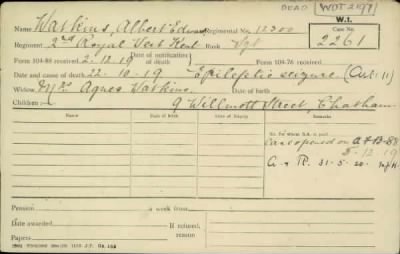 DEAD WOT 219/1
W.1.
Name Watkins, Albert Edward Regimental No. 12300
Case No.
2261
Regiment 2nd Royal West Kent Rank Sgt
Form 104-88 received 2.12.19 Date of notification of death Form 104-76 received
Date and cause of death 22.10.19 Epileptic seizure.
Widow Mrs Agnes Watkins.
Children:— 9 Willmott Street, Chatham.
Name Date of Birth Date of Birth
Case opened on
5.12.19
31.5.20
Pension a week from
Date awarded If refused,
Papers reason